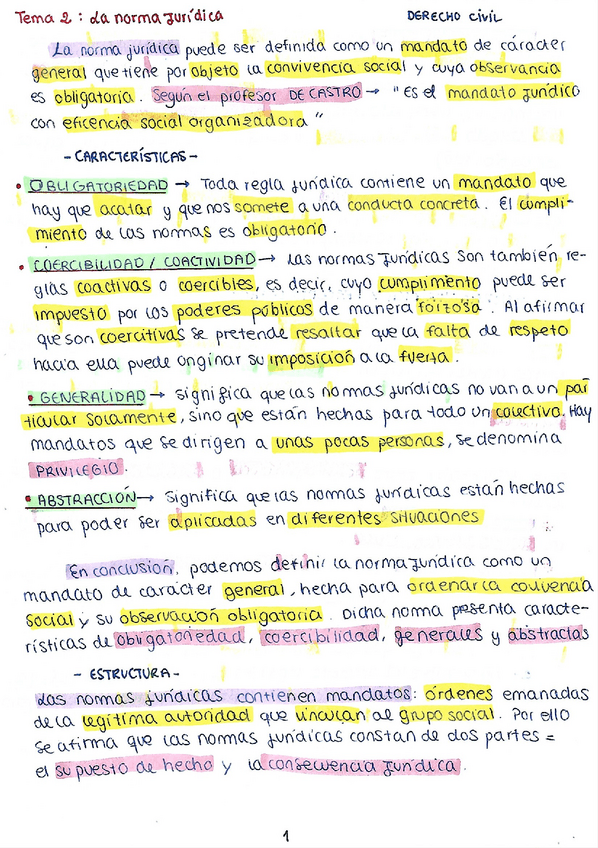 Tema 2: La norma jurídica DERECHO CIVIL
La norma jurídica puede ser definida como un mandato de cáracter
general que tiene por objeto la convivencia social y cuya observancia
es obligatoria. Según el profesor DE CASTRO → "Es el mandato jurídico
con eficencia social organizadora"
- CARACTERÍSTICAS -
• OBLIGATORIEDAD → Toda regla jurídica contiene un mandato que
hay que acatar y que nos somete a una conducta concreta. El cumpli-
miento de las normas es obligatorio.
• COERCIBILIDAD / COACTIVIDAD → Las normas jurídicas son también re-
glas coactivas o coercibles, es decir, cuyo cumplimiento puede ser
impuesto por los poderes públicos de manera forzosa. Al afirmar
que son coercitivas se pretende resaltar que la falta de respeto
hacia ella puede originar su imposición a la fuerza.
• GENERALIDAD → significa que las normas jurídicas no van a un par
ticular solamente, sino que están hechas para todo un colectivo. Hay
mandatos que se dirigen a unas pocas personas, se denomina
PRIVILEGIO.
• ABSTRACCIÓN → Significa que las normas jurídicas están hechas
para poder ser aplicadas en diferentes situaciones
En conclusión, podemos definir la norma jurídica como un
mandato de carácter general, hecha para ordenar la convivencia
social y su observación obligatoria. Dicha norma presenta caracte-
rísticas de obligatoriedad, coercibilidad, generales y abstractas
- ESTRUCTURA -
Las normas jurídicas contienen mandatos: órdenes emanadas
de la legítima autoridad que vinculan al grupo social. Por ello
se afirma que las normas jurídicas constan de dos partes =
el supuesto de hecho y la consecuencia jurídica.
1